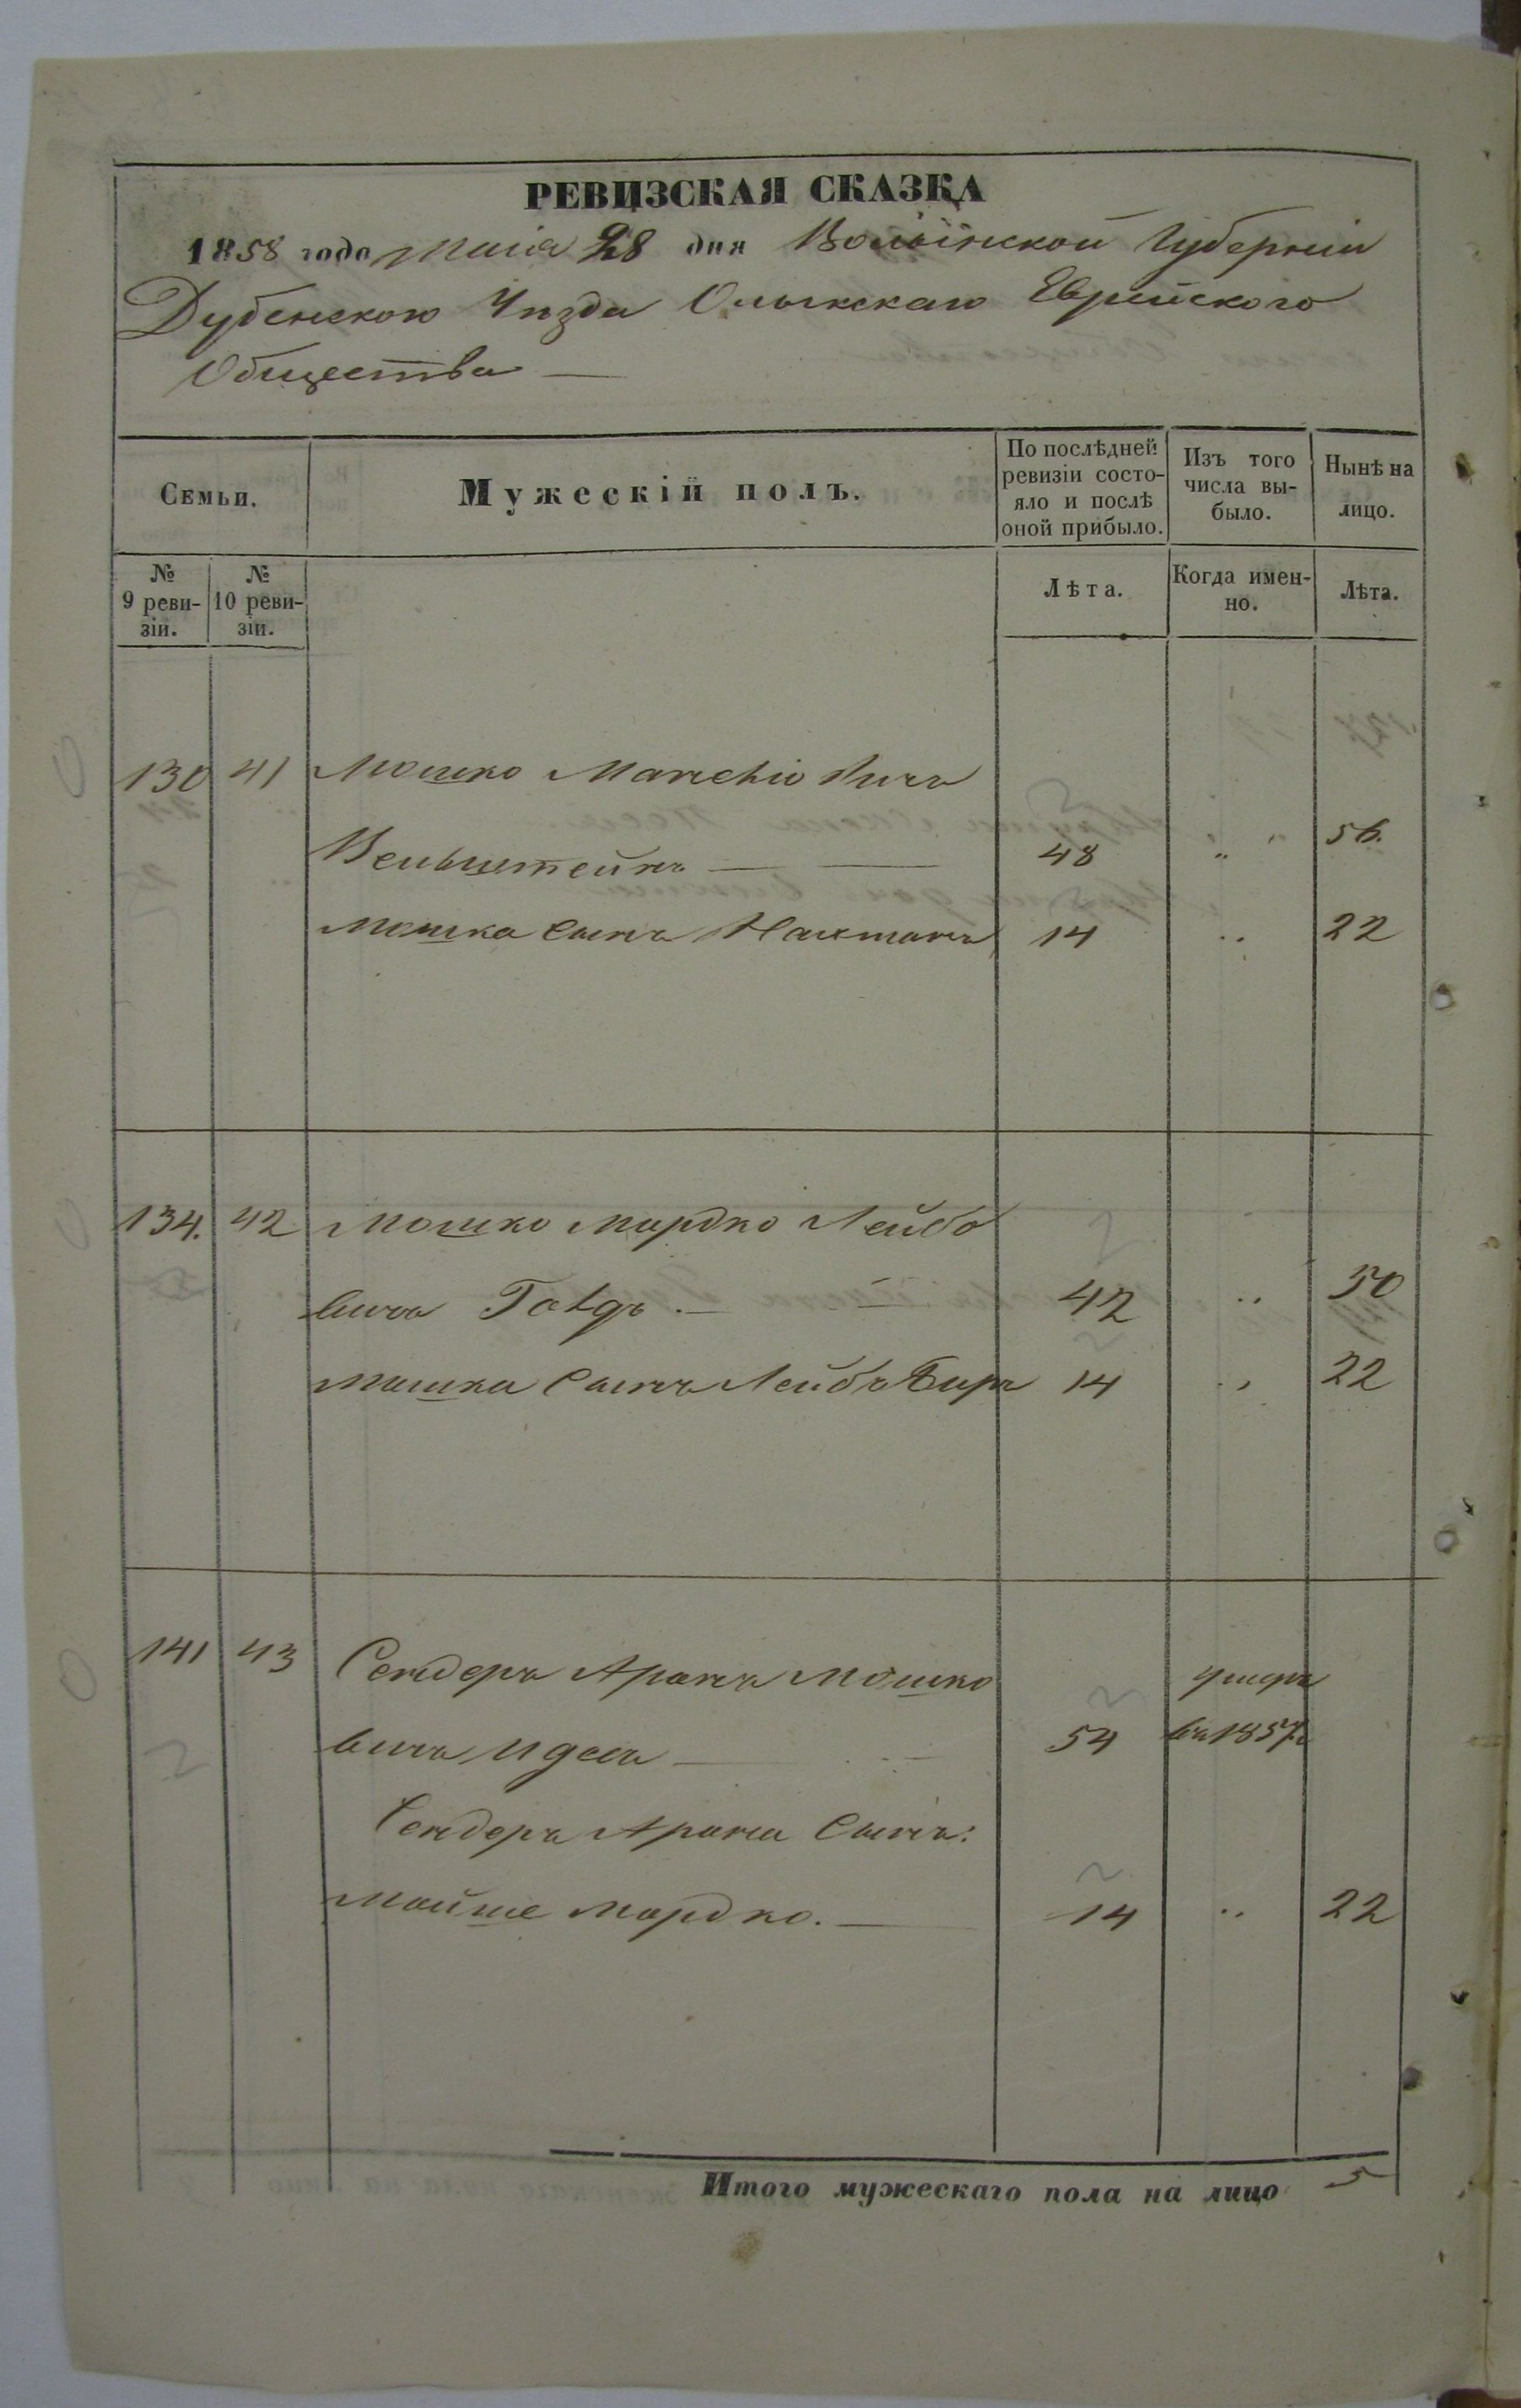 РЕВИЗСКАЯ СКАЗКА
1858 года Маія 28 дня Волынской Губерніи
Дубенскаго Уѣзда Олыкскаго Еврейского
Общества —
Семьи.
Мужескій полъ.
По послѣдней ревизіи состояло и послѣ оной прибыло.
Изъ того числа выбыло.
Нынѣ на лицо.
№ 9 ревизіи.
№ 10 ревизіи.
Лѣта.
Когда именно.
Лѣта.
130 41 Мошко
Вельштейнъ — — 48 " 56.
Мошка сынъ Нахманъ 14 " 22
134. 42 Мошко Мордко Лейбо
вичъ — 42 " 50
Мошка Сынъ Лейбъ Беръ 14 " 22
141 43 Сендеръ Аронъ Мошко умеръ
вичъ — 54 въ 1857г
Сендеръ Арона Сынъ:
Мойше Мордко. — 14 " 22
Итого мужескаго пола на лицо 5